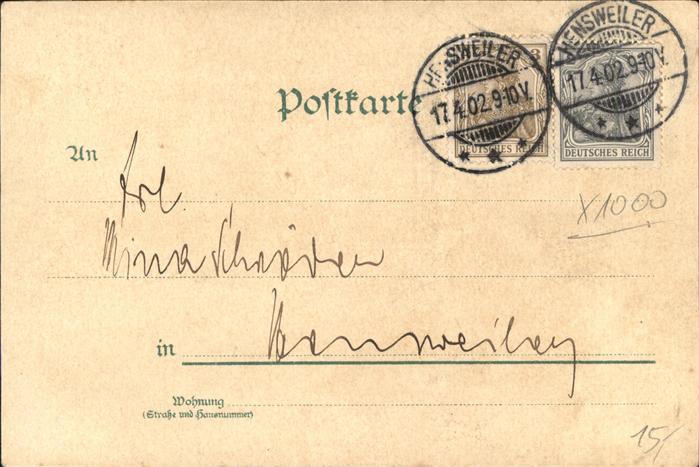 HENSWEILER
17.4.02.9-10V.
HENSWEILER
17.4.02.9-10V.
3
DEUTSCHES REICH
DEUTSCHES REICH
Postkarte
An
Frl.
Mina
X1000
in Hennweiler
Wohnung
(Straße und Hausnummer)
15/